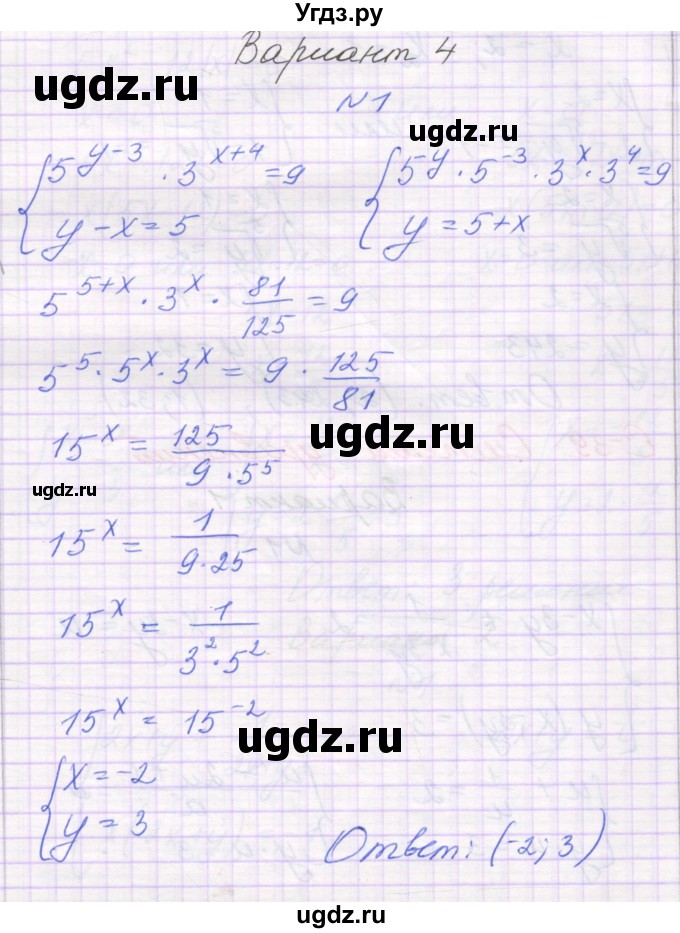 Угдз.ру
Вариант 4
ugdz.ru
№1
ugdz.ru
{ 5^(y-3) · 3^(x+4) = 9
y - x = 5
{ 5^y · 5^(-3) · 3^x · 3^4 = 9
y = 5 + x
5^(5+x) · 3^x · 81/125 = 9
5^5 · 5^x · 3^x = 9 · 125/81
ugdz.ru
15^x = 125/(9 · 5^5)
ugdz.ru
15^x = 1/(9 · 25)
15^x = 1/(3^2 · 5^2)
15^x = 15^(-2)
ugdz.ru
{ x = -2
y = 3
Ответ: (-2; 3)
ugdz.ru